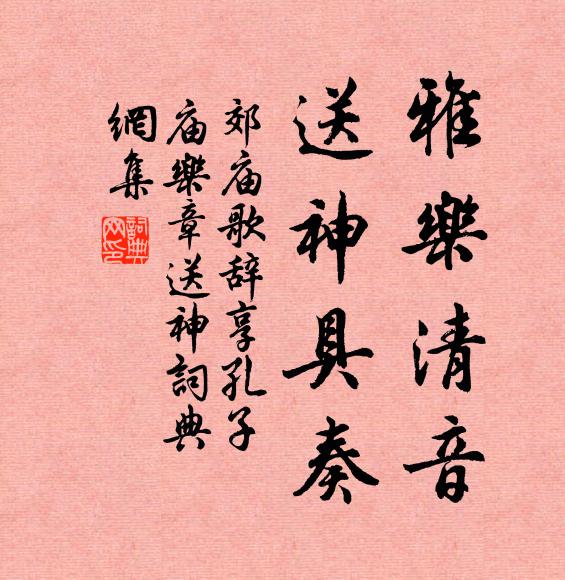 雅樂清音
送神具奏
郊庙歌辞享孔子
庙樂章送神詞典
網集
詞典
网印